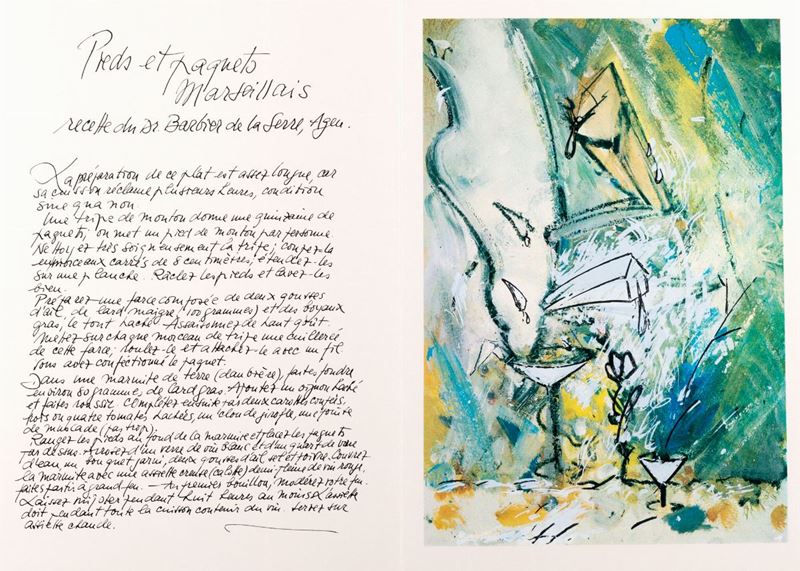 Pieds et paquets
Marseillais
recette du Dr. Barbier de la Serre, Agen.
La préparation de ce plat est assez longue, car
sa cuisson réclame plusieurs heures, condition
sine qua non
Une tripe de mouton donne une quinzaine de
paquets; on met un pied de mouton par personne.
Nettoyez très soigneusement la tripe; coupez-la
en morceaux carrés de 8 centimètres; étendez-les
sur une planche. Raclez les pieds et lavez-les
bien.
Préparez une farce composée de deux gousses
d'ail, de lard maigre (100 grammes) et des boyaux
gras, le tout haché. Assaisonnez de haut goût.
Mettez sur chaque morceau de tripe une cuillerée
de cette farce; roulez-le et attachez-le avec un fil
vous avez confectionné le paquet.
Dans une marmite de terre (daubière), faites fondre
environ 80 grammes de lard gras. Ajoutez un oignon haché
et faites roussir. Complétez ensuite par deux carottes
trois ou quatre tomates hachées, un clou de girofle, une pointe
de muscade (pas trop).
Rangez les pieds au fond de la marmite et placez les paquets
par dessus. Arrosez d'un verre de vin blanc et d'un quart de verre
d'eau, un bouquet garni, deux gousses d'ail, sel et poivre. Couvrez
la marmite avec une assiette creuse (calotte) demi-pleine de vin rouge,
faites partir à grand feu. — Au premier bouillon, modérez votre feu.
Laissez mijoter pendant huit heures au moins. L'assiette
doit pendant toute la cuisson contenir du vin. Servez sur
assiette chaude.